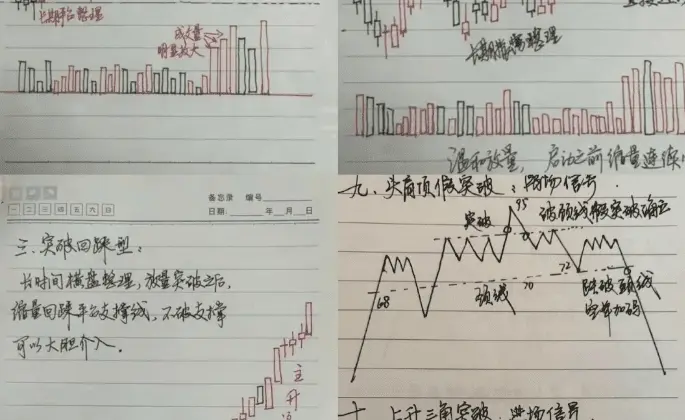 长期平台整理
成交量
明显放大
长期横盘整理
温和放量，启动之前缩量连续
备忘录 编号
日期： 年 月 日
一 二 三 四 五 六 日
三、突破回踩型：
长时间横盘整理，放量突破之后，
缩量回踩平台支撑线，不破支撑
可以大胆介入。
主升
九、头肩顶假突破：离场信号．
95
突破
破颈线假突破确立
72
68
颈线
70
跌破颈线
空单加码
十、上升三角突破：进场信号